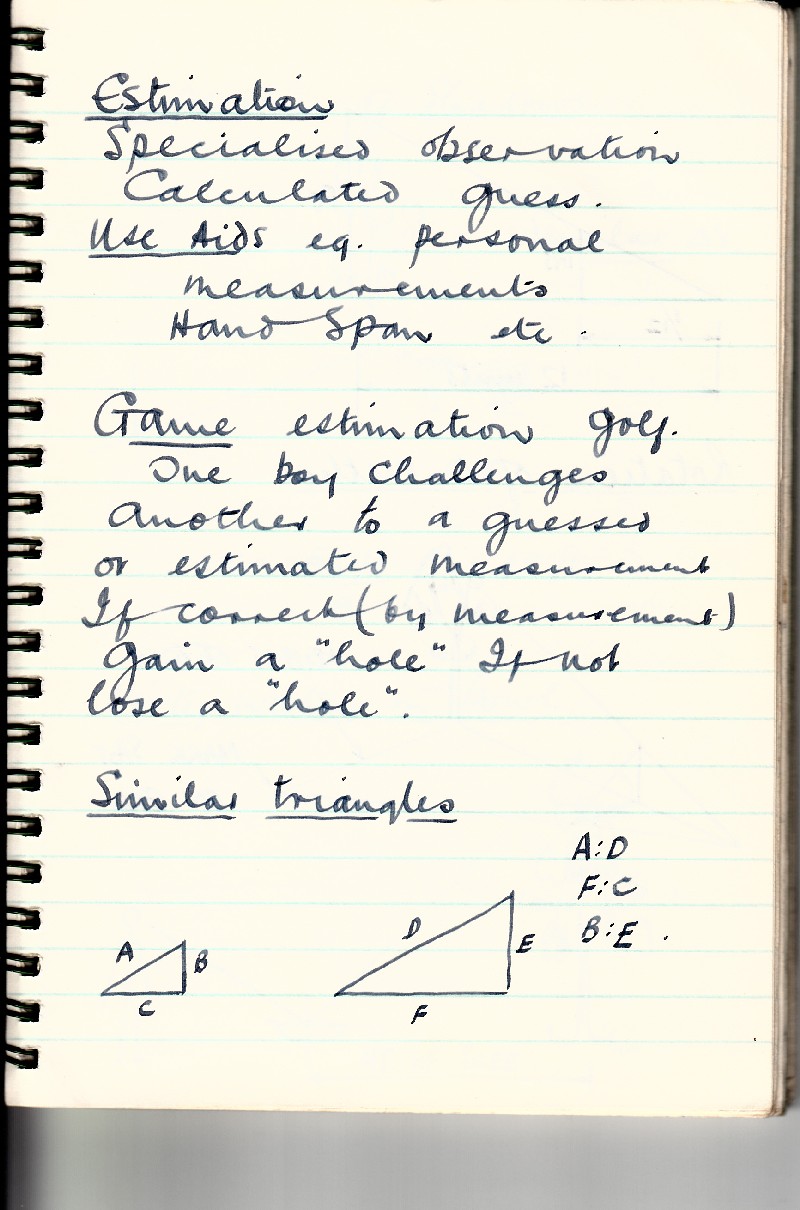 Estimation
Specialised observation
Calculated guess.
Use Aids eg. personal
measurements
Hand Span etc.
Game estimation golf.
One boy challenges
another to a guessed
or estimated measurement
If correct (by measurement)
Gain a "hole" If not
lose a "hole".
Similar triangles
A:D
F:C
B:E.
A
B
C
D
E
F